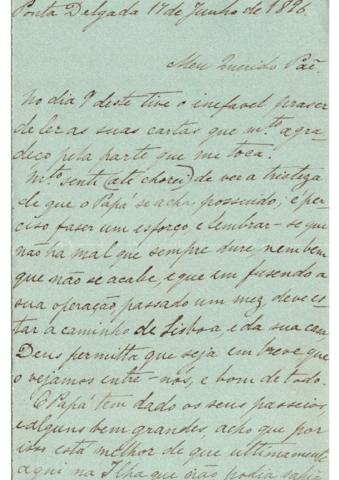 Ponta Delgada 17 de Junho de 1896.
Meu Querido Paê.
No dia 7 deste tive o inefavel praser
de ler as suas cartas que m.to agra-
deço pela parte que me toca.
M.to senti (até chorei) de ver a tristeza
de que o Papá se acha possuido, é per-
ciso faser um esforço e lembrar-se que
não ha mal que sempre dure nem bem
que não se acabe, e que em fasendo a
sua operação, passado um mez, deve es-
tar a caminho de Lisboa e da sua casa
Deus permitta que seja em breve que
o vejamos entre-nós, e bom de todo.
O Papá tem dado os seus passeios,
e alguns bem grandes, acho que por
isso está melhor de que ultimamente
aqui na Ilha que não podia